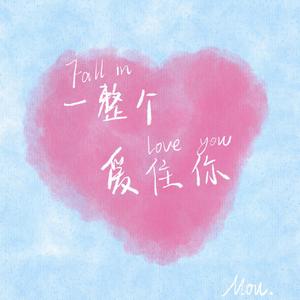 Fall in
一整个
love you
爱住你
Mou.